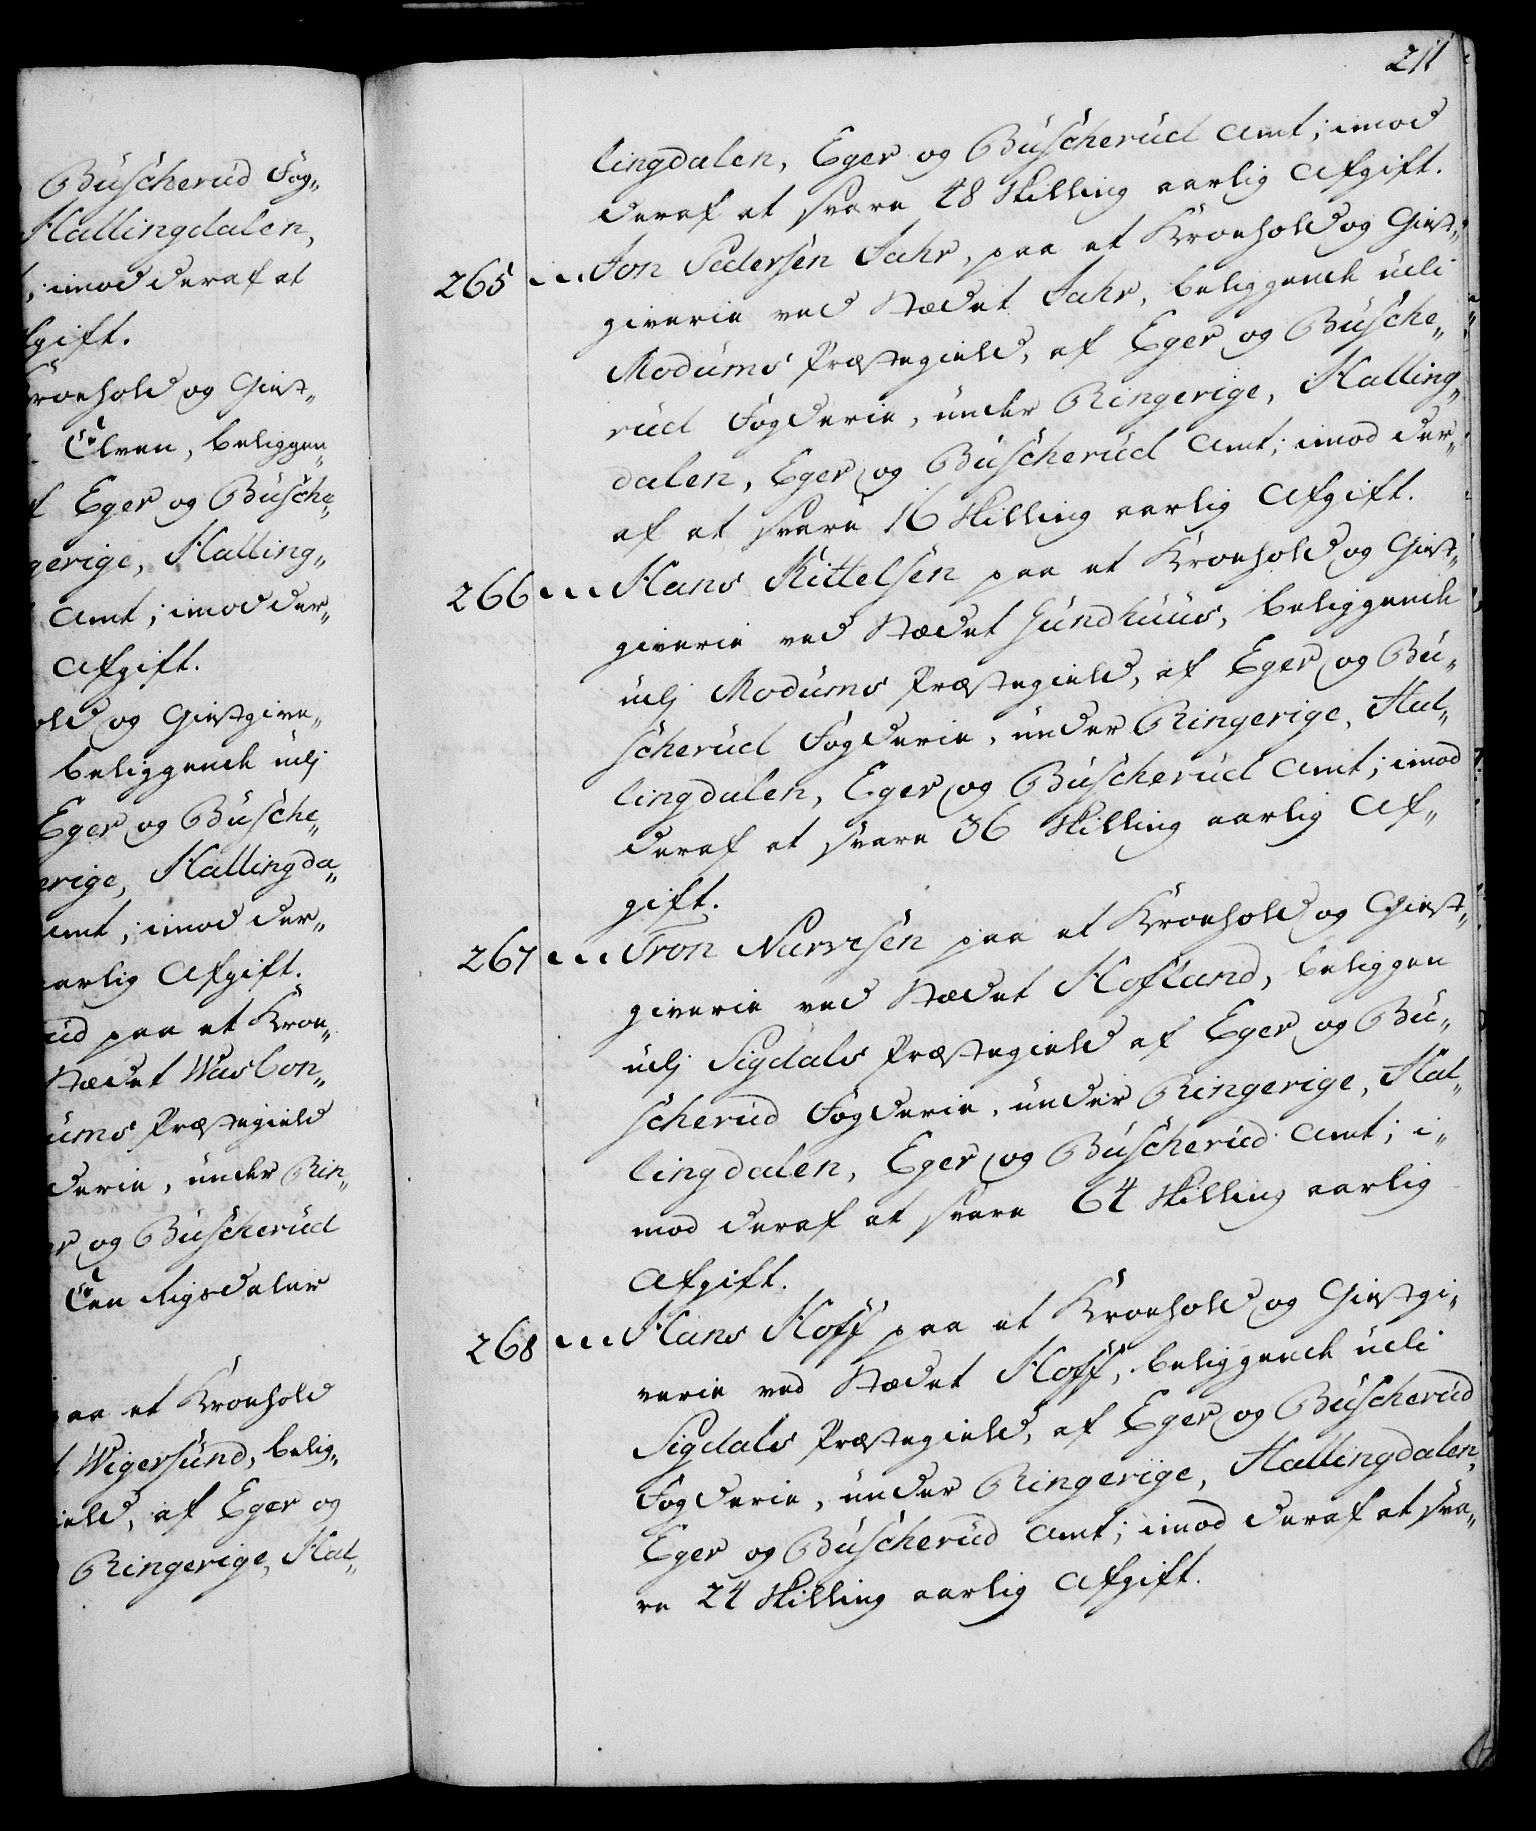 Buscherud Fog„
Hallingdalen,
imod deraf at
fgift.
Kroehold og Giest„
Elven, beliggen„
f Eger og Busche„
gerige, Halling„
Amt; imod der„
Afgift.
old og Giestgive„
beliggende udj
Eger og Busche„
erige, Hallingda„
Amt; imod der„
aarlig Afgift.
ud paa et Kroe„
Stædet Wasbon„
ums Præstegield
derie, under Rin„
er og Buscherud
Een Rigsdaler
paa et Kroehold
Wigersund, belig„
ield, af Eger og
Ringerige, Hal„
211
lingdalen, Eger og Buscherud Amt; imod
deraf at svare 48 Skilling aarlig Afgift.
265 ... Jon Pedersen Jahr, paa et Kroehold og Giest„
giverie ved Stædet Jahr, beliggende udi
Modums Præstegield, af Eger og Busche„
rud Fogderie, under Ringerige, Halling„
dalen, Eger og Buscherud Amt; imod der„
af at svare 16 Skilling aarlig Afgift.
266 ... Hans Kittelsen paa et Kroehold og Giest„
giverie ved Stædet Gundhuus, beliggende
udj Modums Præstegield, af Eger og Bu„
scherud Fogderie, under Ringerige, Hal„
lingdalen, Eger og Buscherud Amt; imod
deraf at svare 36 Skilling aarlig Af„
gift.
267 ... Tron Narvesen paa et Kroehold og Giest„
giverie ved Stædet Hofland, beliggen
udj Sigdals Præstegield af Eger og Bu„
scherud Fogderie, under Ringerige, Hal„
lingdalen, Eger og Buscherud Amt; i„
mod deraf at svare 64 Skilling aarlig
Afgift.
268 ... Hans Hoff paa et Kroehold og Giestgi„
verie ved Stædet Hoff, beliggende udi
Sigdals Præstegield, af Eger og Buscherud
Fogderie, under Ringerige, Hallingdalen,
Eger og Buscherud Amt; imod deraf at sva„
re 24 Skilling aarlig Afgift.